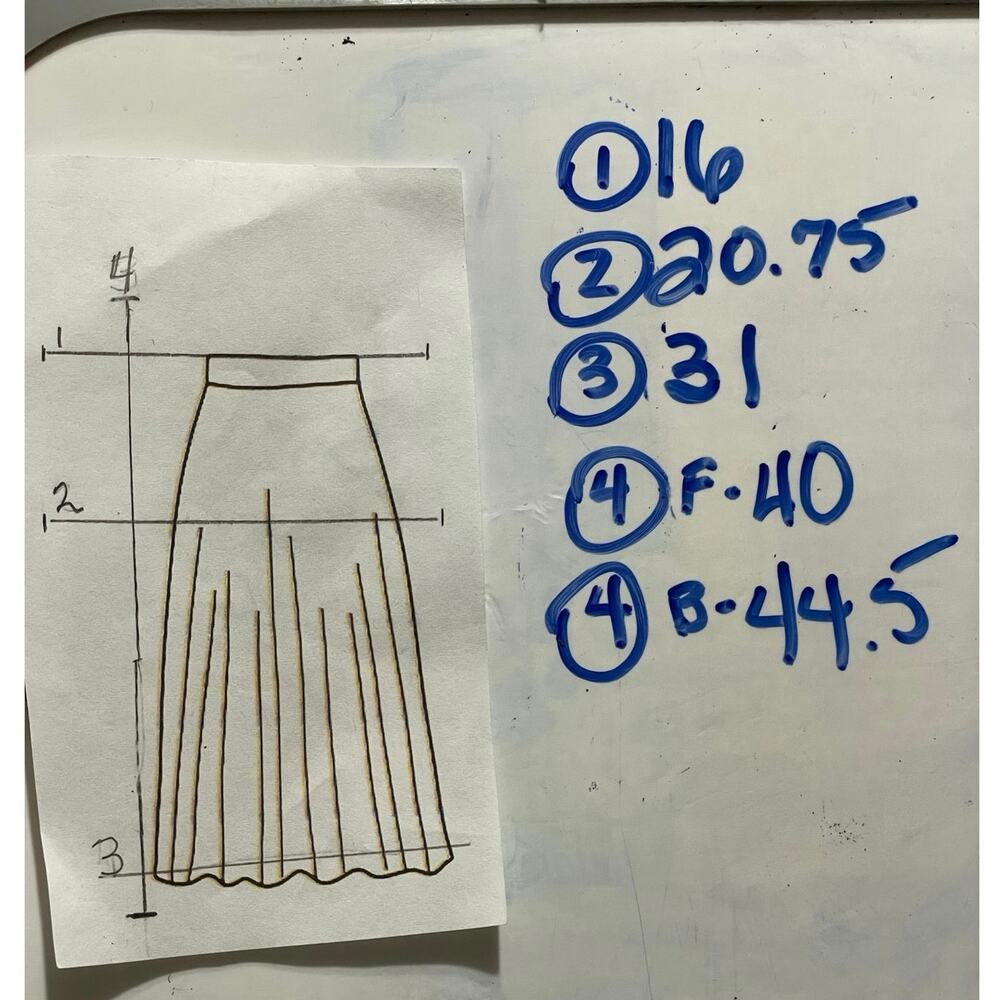 4
1
2
3
① 16
② 20.75
③ 31
④ F. 40
④ B. 44.5